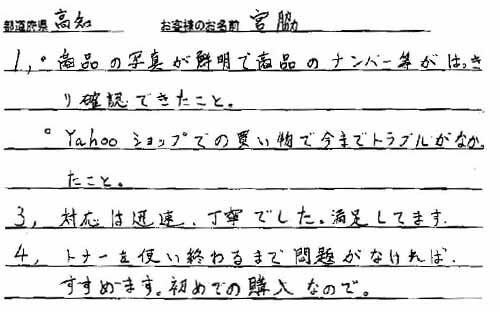 都道府県 高知 お客様のお名前 宮脇
1,。商品の写真が鮮明で商品のナンバー等がはっき
り確認できたこと。
。Yahooショップでの買い物で今までトラブルがなかっ
たこと。
3, 対応は迅速、丁寧でした。満足してます.
4, トナーを使い終わるまで問題がなければ、
すすめます。初めての購入なので。